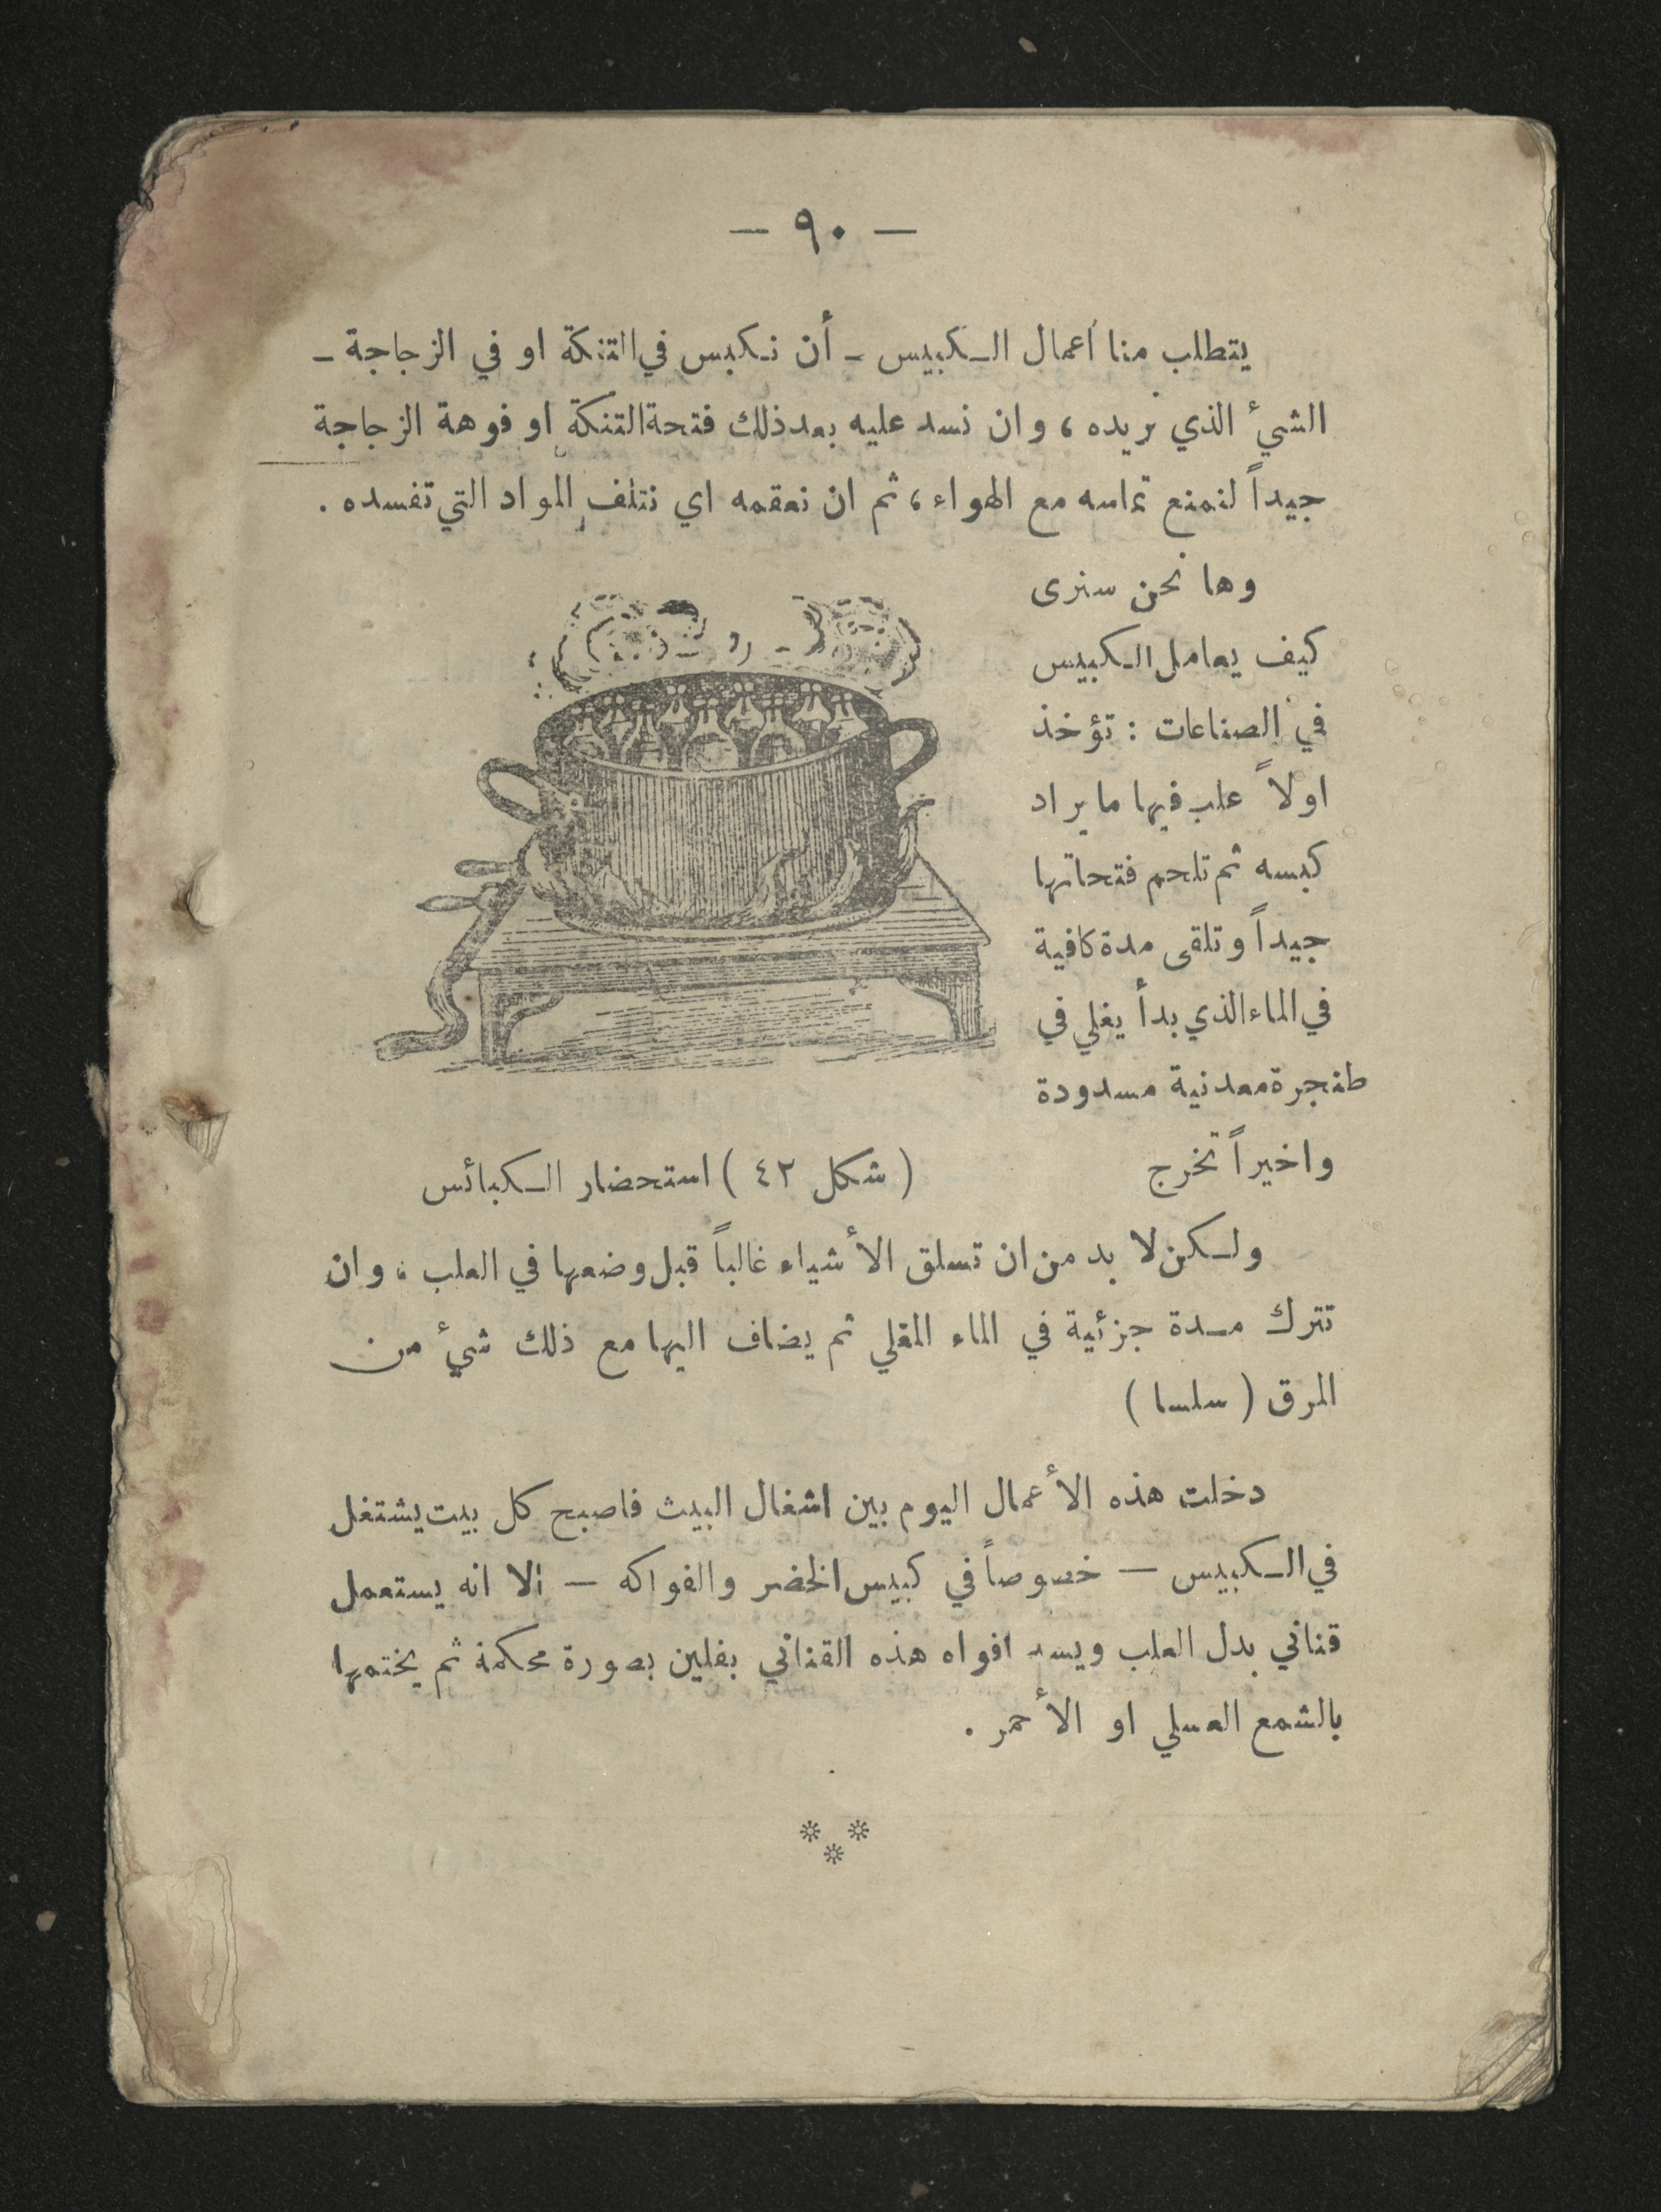 — ٩٠ —
يتطلب منا اعمال الكبيس - أن نكبس في التنكة او في الزجاجة -
الشيء الذي نريده ، وان نسد عليه بعد ذلك فتحة التنكة او فوهة الزجاجة
جيداً لنمنع تماسه مع الهواء ، ثم ان نعقمه اي نتلف المواد التي تفسده .
وها نحن سنرى
كيف يعامل الكبيس
في الصناعات : تؤخذ
اولاً علب فيها ما يراد
كبسه ثم تلحم فتحاتها
جيداً وتلقى مدة كافية
في الماء الذي بدأ يغلي في
طنجرة معدنية مسدودة
واخيراً تخرج
( شكل ٤٢ ) استحضار الكبائس
ولكن لا بد من ان تسلق الأشياء غالباً قبل وضعها في العلب ، وان
تترك مدة جزئية في الماء المغلي ثم يضاف اليها مع ذلك شيء من
المرق ( سلسا )
دخلت هذه الأعمال اليوم بين اشغال البيت فاصبح كل بيت يشتغل
في الكبيس — خصوصاً في كبيس الخضر والفواكه — الا انه يستعمل
قناني بدل العلب ويسد افواه هذه القناني بفلين بصورة محكمة ثم يختمها
بالشمع العسلي او الأحمر .